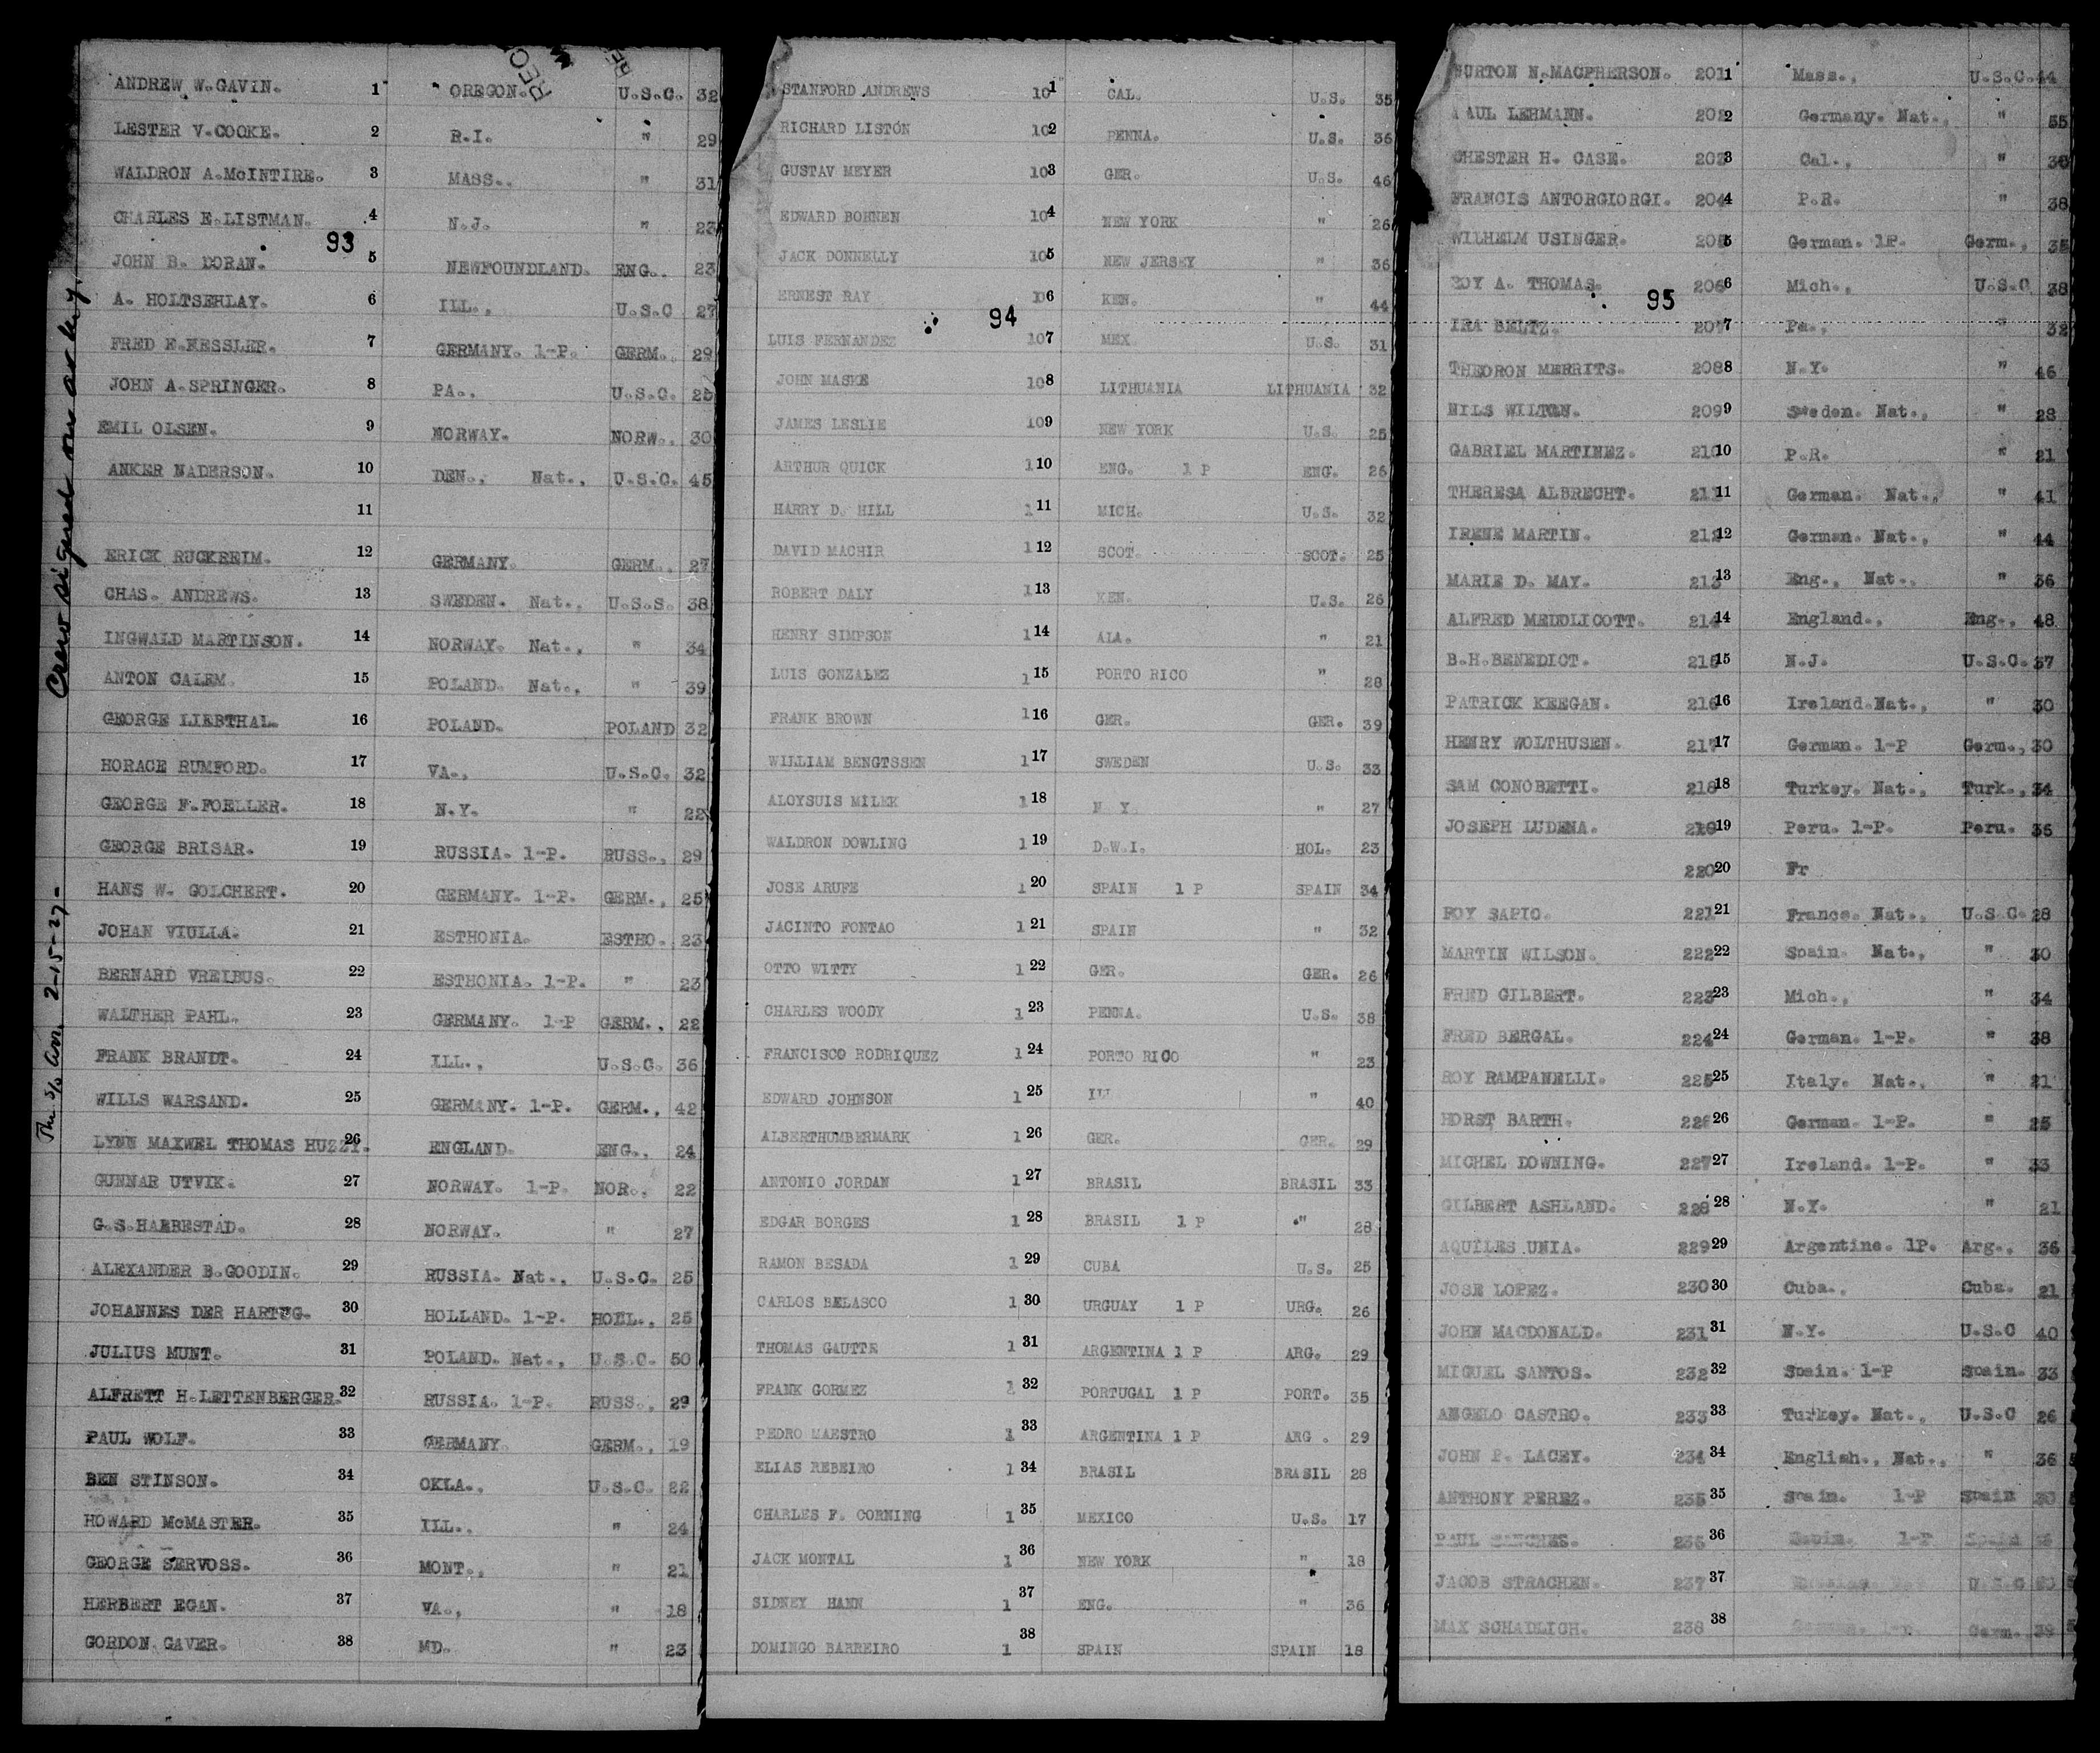 Crew signed on as they
Thr. S/S Arr. 2-15-27-
93
ANDREW W.GAVIN. 1 OREGON. U.S.C. 32
LESTER V.COOKE. 2 R.I. " 29
WALDRON A.McINTIRE. 3 MASS.. " 31
CHARLES E.LISTMAN. 4 N.J. " 23
JOHN B. DORAN. 5 NEWFOUNDLAND. ENG.. 23
A. HOLTSEHLAY. 6 ILL., U.S.C 27
FRED E.KESSLER. 7 GERMANY. 1-P. GERM., 29
JOHN A.SPRINGER. 8 PA., U.S.C. 25
EMIL OLSEN. 9 NORWAY. NORW., 30
ANKER NADERSON. 10 DEN., Nat., U.S.C. 45
11
ERICK RUCKREIM. 12 GERMANY. GERM., 27
CHAS. ANDREWS. 13 SWEDEN. Nat., U.S.S. 38
INGWALD MARTINSON. 14 NORWAY. Nat., " 34
ANTON CALEM. 15 POLAND. Nat., " 39
GEORGE LIEBTHAL. 16 POLAND. POLAND 32
HORACE RUMFORD. 17 VA., U.S.C. 32
GEORGE F.FOELLER. 18 N.Y. " 22
GEORGE BRISAR. 19 RUSSIA. 1-P. RUSS., 29
HANS W. GOLCHERT. 20 GERMANY. 1-P. GERM., 25
JOHAN VIULLA. 21 ESTHONIA. ESTHO. 23
BERNARD VREIBUS. 22 ESTHONIA. 1-P. " 23
WALTHER PAHL. 23 GERMANY. 1-P GERM., 22
FRANK BRANDT. 24 ILL., U.S.C. 36
WILLS WARSAND. 25 GERMANY. 1-P. GERM., 42
LYNN MAXWEL THOMAS HUZZY. 26 ENGLAND. ENG., 24
GUNNAR UTVIK. 27 NORWAY. 1-P. NOR., 22
G.S.HARBESTAD. 28 NORWAY. " 27
ALEXANDER B.GOODIN. 29 RUSSIA. Nat., U.S.C. 25
JOHANNES DER HARTUG. 30 HOLLAND. 1-P. HOLL., 25
JULIUS MUNT. 31 POLAND. Nat., U.S.C. 50
ALFRETT H.LETTENBERGER. 32 RUSSIA. 1-P. RUSS., 29
PAUL WOLF. 33 GERMANY. GERM., 19
BEN STINSON. 34 OKLA., U.S.C. 22
HOWARD McMASTER. 35 ILL., " 24
GEORGE SERVOSS. 36 MONT., " 21
HERBERT EGAN. 37 VA., " 18
GORDON GAVER. 38 MD. " 23
94
STANFORD ANDREWS 101 CAL. U.S. 35
RICHARD LISTON 102 PENNA. U.S. 36
GUSTAV MEYER 103 GER. U.S. 46
EDWARD BOHNEN 104 NEW YORK " 26
JACK DONNELLY 105 NEW JERSEY " 36
ERNEST RAY 106 KEN. " 44
LUIS FERNANDEZ 107 MEX. U.S. 31
JOHN MASKE 108 LITHUANIA LITHUANIA 32
JAMES LESLIE 109 NEW YORK U.S. 25
ARTHUR QUICK 110 ENG. 1 P ENG. 26
HARRY D. HILL 111 MICH. U.S. 32
DAVID MACHIR 112 SCOT. SCOT. 25
ROBERT DALY 113 KEN. U.S. 26
HENRY SIMPSON 114 ALA. " 21
LUIS GONZALEZ 115 PORTO RICO " 28
FRANK BROWN 116 GER. GER. 39
WILLIAM BENGTSSEN 117 SWEDEN U.S. 33
ALOYSUIS MILEK 118 N Y. " 27
WALDRON DOWLING 119 D.W.I. HOL. 23
JOSE ARUFE 120 SPAIN 1 P SPAIN 34
JACINTO FONTAO 121 SPAIN " 32
OTTO WITTY 122 GER. GER. 26
CHARLES WOODY 123 PENNA. U.S. 38
FRANCISCO RODRIQUEZ 124 PORTO RICO " 23
EDWARD JOHNSON 125 ILL " 40
ALBERTHUMBERMARK 126 GER. GER. 29
ANTONIO JORDAN 127 BRASIL BRASIL 33
EDGAR BORGES 128 BRASIL 1 P " 28
RAMON BESADA 129 CUBA U.S. 25
CARLOS BELASCO 130 URGUAY 1 P URG. 26
THOMAS GAUTTE 131 ARGENTINA 1 P ARG. 29
FRANK GORMEZ 132 PORTUGAL 1 P PORT. 35
PEDRO MAESTRO 133 ARGENTINA 1 P ARG . 29
ELIAS REBEIRO 134 BRASIL BRASIL 28
CHARLES F. CORNING 135 MEXICO U.S. 17
JACK MONTAL 136 NEW YORK " 18
SIDNEY HANN 137 ENG. " 36
DOMINGO BARREIRO 138 SPAIN SPAIN 18
95
BURTON N.MACPHERSON. 2011 Mass., U.S.C. 44
PAUL LEHMANN. 2022 Germany. Nat., " 35
CHESTER H. CASE. 2033 Cal., " 36
FRANCIS ANTORGIORGI. 2044 P.R. " 38
WILHELM USINGER. 2055 German. 1P. Germ., 35
ROY A. THOMAS. 2066 Mich., U.S.C 38
IRA BELTZ. 2077 Pa., " 32
THEORON MERRITS. 2088 N.Y. " 46
NILS WILTON. 2099 Sweden. Nat., " 28
GABRIEL MARTINEZ. 21010 P.R. " 21
THERESA ALBRECHT. 21111 German. Nat., " 41
IRENE MARTIN. 21212 German. Nat., " 44
MARIE D. MAY. 21313 Eng., Nat., " 36
ALFRED MEDDLICOTT. 21414 England., Eng., 48
B.H.BENEDICT. 21515 N.J. U.S.C. 37
PATRICK KEEGAN. 21616 Ireland.Nat., " 30
HENRY WOLTHUSEN. 21717 German. 1-P Germ., 30
SAM CONOBETTI. 21818 Turkey. Nat., Turk., 34
JOSEPH LUDENA. 21919 Peru. 1-P. Peru. 35
22020 Fr
ROY SAPIO. 22121 France. Nat., U.S.C. 28
MARTIN WILSON. 22222 Spain. Nat., " 30
FRED GILBERT. 22323 Mich., " 34
FRED BERGAL. 22424 German. 1-P. " 38
ROY RAMPANELLI. 22525 Italy. Nat., " 21
HORST BARTH. 22626 German. 1-P. " 25
MICHEL DOWNING. 22727 Ireland. 1-P. " 33
GILBERT ASHLAND. 22828 N.Y. " 21
AQUILES UNIA. 22929 Argentine. 1P. Arg., 36
JOSE LOPEZ. 23030 Cuba., Cuba. 21
JOHN MACDONALD. 23131 N.Y. U.S.C 40
MIGUEL SANTOS. 23232 Spain. 1-P Spain. 33
ANGELO CASTRO. 23333 Turkey. Nat., U.S.C 26
JOHN P. LACEY. 23434 English., Nat., " 36
ANTHONY PEREZ. 23535 Spain. 1-P Spain 30
PAUL 23636 Spain. 1-P Spain
JACOB STRACHEN. 23737 U.S.C
MAX SCHADLICH. 23838 German. 1-P. Germ. 39